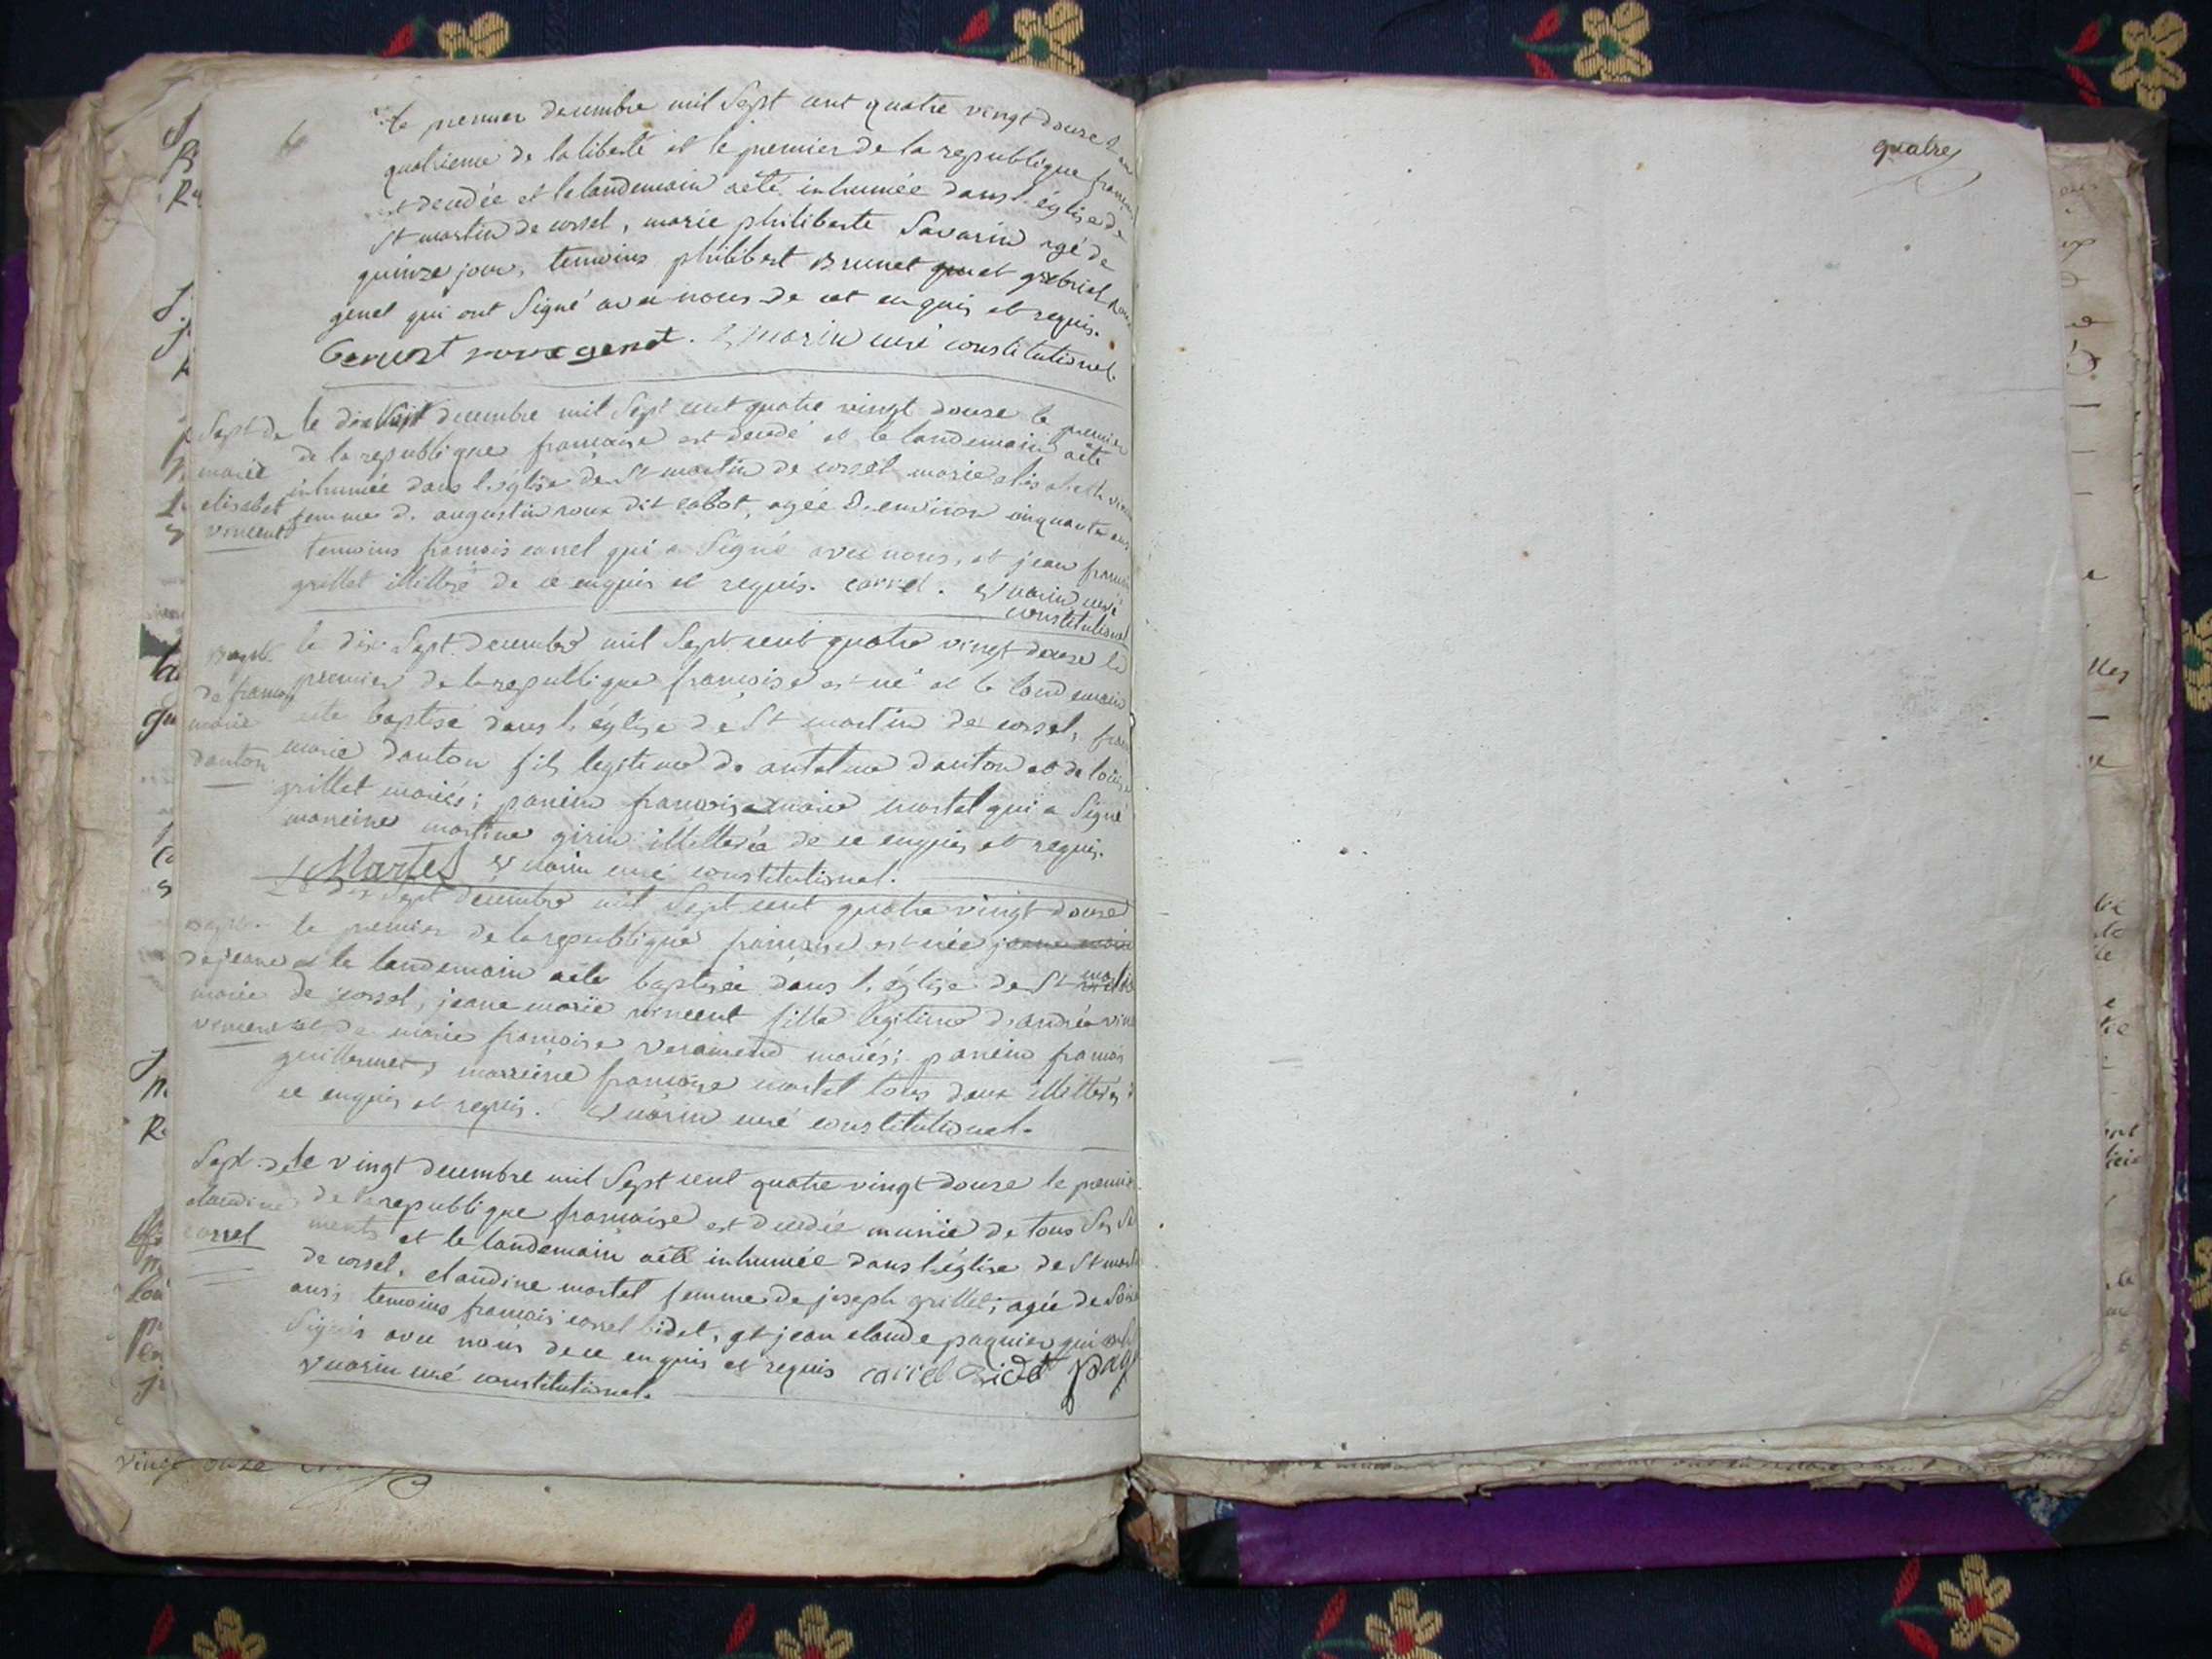 le premier decembre mil Sept cent quatre vingt douze l'an
quatrieme de la liberté et le premier de la republique
est decedée et le landemain aété inhumée dans l'église de
St martin de corsel, marie philiberte Savarin agé de
quinze jour, temoins philibert Brunet gabriel
genet qui ont Signé avec nous de cet enquis et requis.
roux genet. Vuarin curé constitutionel.
Sept. de
marie
elisabet
vincent
le dix Sept decembre mil Sept cent quatre vingt douze le premier
de la republique francaise est decedé et le landemain aété
inhumée dans l'église de St martin de corsel marie elisabeth
femme d. augustin roux dit cabot, agée d. environ cinquante ans
temoins francois carrel qui a Signé avec nous, et jean
grillet illittere de ce enquis et requis. carrel. Vuarin curé
constitutionel
Bapt.
de francois
marie
danton
le dix Sept decembre mil Sept cent quatre vingt douze le
premier de la republique francoise est né et le landemain
été baptisé dans l. église de St martin de corsel,
marie danton fils legitime de antelme danton et de
grillet mariés; parein francoise marie martel qui a Signé
mareine martine girin illitterée de ce enquis et requis.
Martel Vuarin curé constitutionel.
Bapt.
de jeane
marie
vincent
Le dix Sept decembre mil Sept cent quatre vingt douze
le premier de la republique francaise est née jeane marie
et le landemain aété baptisée dans l. église de St martin
de corsel, jeane marie vincent fille legitime d'andré
et de marie francoise mariés; parein francois
guillermet, mareine francoise martel tous deux illitterés
ce enquis et requis. Vuarin curé constitutionel.
Sept. de
claudine
le vingt decembre mil Sept cent quatre vingt douze le premier
de la republique francaise est decedée munie de tous Ses
ments et le landemain aété inhumée dans l'église de St
de corsel, claudine martel femme de joseph grillet; agée de
ans; temoins francois carrel bidet, et jean claude paquier qui ont
Signés avec nous de ce enquis et requis carrel Bidet
Vuarin curé constitutionel.
vingt onze
quatre